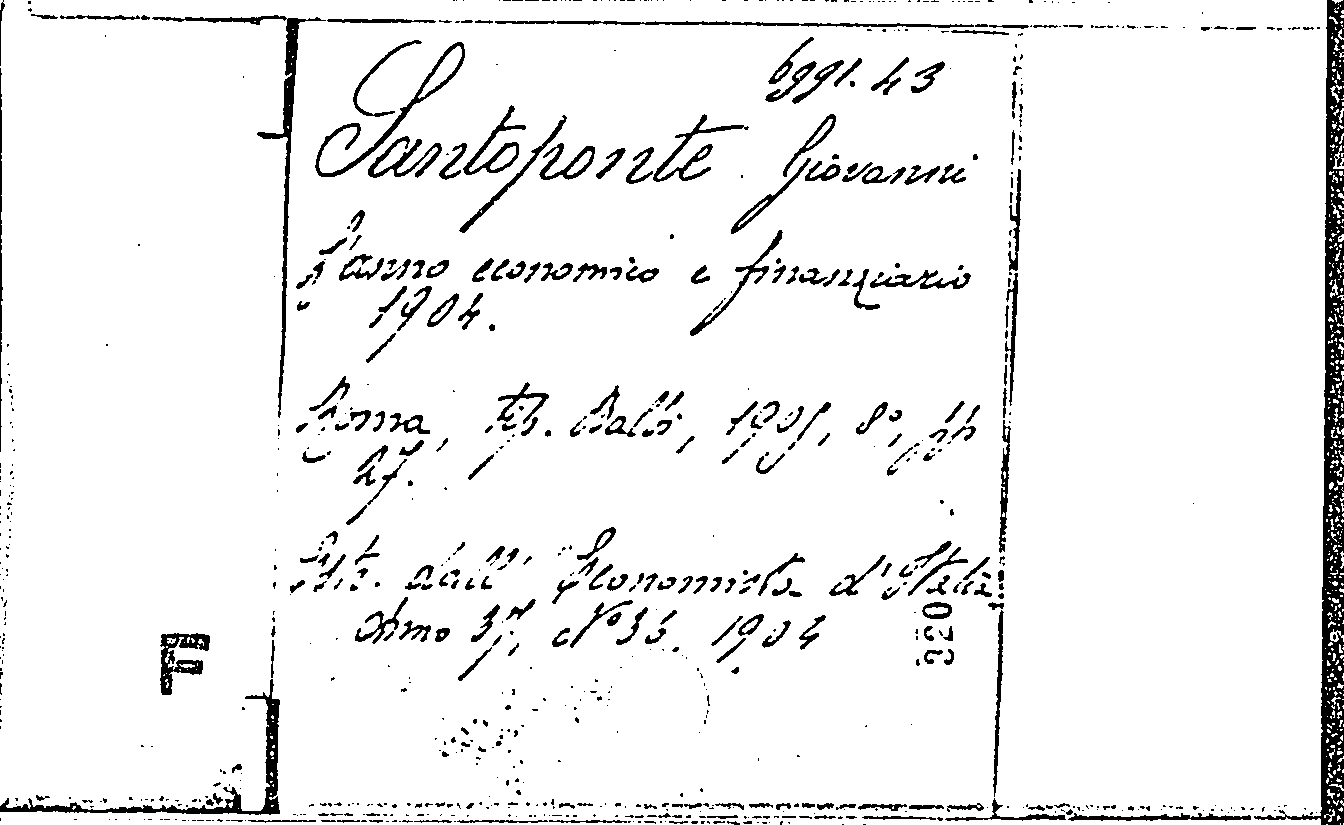 6991. 43
Santoponte Giovanni
L'anno economico e finanziario
1904.
Roma, tip. Balbi, 1905, 8°, pp
27.
Estr. dall' Economista d'Italia
Anno 37, N° 33. 1904
320
F